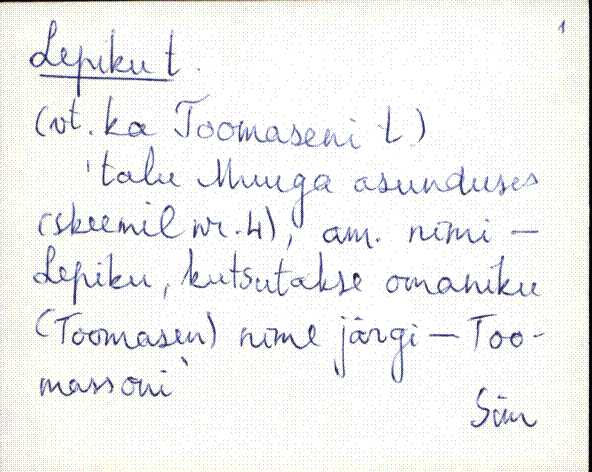 1
Lepiku t.
(vt. ka Toomaseni t.)
'talu Muuga asunduses
(skeemil nr. 4), am. nimi –
Lepiku, kutsutakse omaniku
(Toomasen) nime järgi – Too-
massoni'
Sim